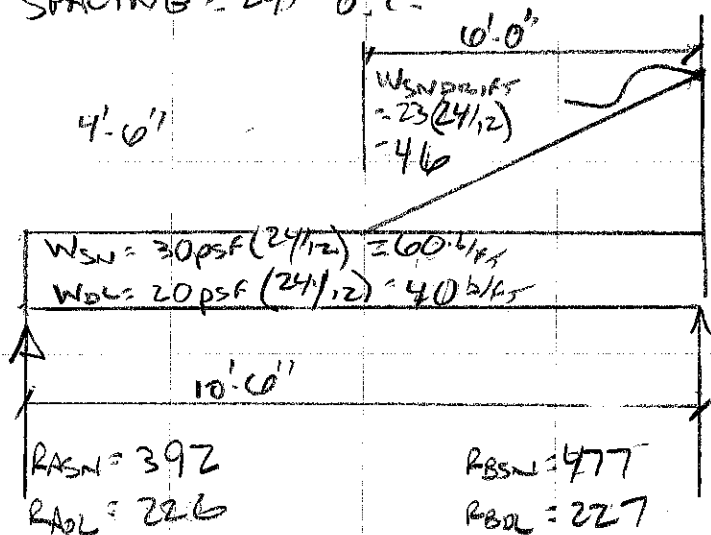 SPACING = 24" O.C.
6'-0"
WSNDRIFT
= 23(24/12)
= 46
4'-6"
WSN = 30psf (24/12) = 60 lb/ft
WDL = 20psf (24/12) = 40 lb/ft
10'-6"
RASN = 392
RADL = 226
RBSN = 477
RBDL = 227